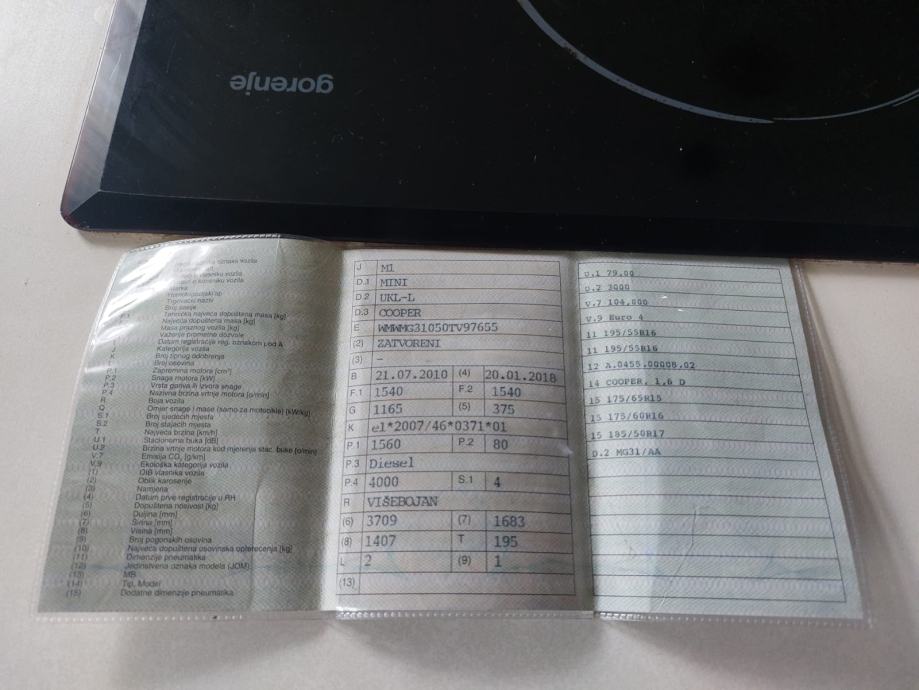 gorenje
oznaka vozila
vozila
vozila
Marka
Trgovački naziv
Broj šasije
Tehnička najveća dopuštena masa [kg]
Najveća dopuštena masa [kg]
Masa praznog vozila [kg]
Važenje prometne dozvole
Datum registracije reg. oznakom pod A
J Kategorija vozila
K Broj tipnog odobrenja
L Broj osovina
P.1 Zapremina motora [cm³]
P.2 Snaga motora [kW]
P.3 Vrsta goriva ili izvora snage
P.4 Nazivna brzina vrtnje motora [o/min]
R Boja vozila
Q Omjer snage i mase (samo za motocikle) [kW/kg]
S.1 Broj sjedećih mjesta
S.2 Broj stajaćih mjesta
T Najveća brzina [km/h]
U.1 Stacionarna buka [dB]
U.2 Brzina vrtnje motora kod mjerenja stac. buke [o/min]
V.7 Emisija CO₂ [g/km]
V.9 Ekološka kategorija vozila
(1) OIB vlasnika vozila
(2) Oblik karoserije
(3) Namjena
(4) Datum prve registracije u RH
(5) Dopuštena nosivost [kg]
(6) Duljina [mm]
(7) Širina [mm]
(8) Visina [mm]
(9) Broj pogonskih osovina
(10) Najveće dopuštena osovinska opterećenja [kg]
(11) Dimenzije pneumatika
(12) Jedinstvena oznaka modela (JOM)
(13) MB
(14) Tip, Model
(15) Dodatne dimenzije pneumatika
J M1
D.1 MINI
D.2 UKL-L
D.3 COOPER
E WMWMG31050TV97655
(2) ZATVORENI
(3) -
B 21.07.2010 (4) 20.01.2018
F.1 1540 F.2 1540
G 1165 (5) 375
K e1*2007/46*0371*01
P.1 1560 P.2 80
P.3 Diesel
P.4 4000 S.1 4
R VIŠEBOJAN
(6) 3709 (7) 1683
(8) 1407 T 195
L 2 (9) 1
(13)
U.1 79,00
U.2 3000
V.7 104,000
V.9 Euro 4
11 195/55R16
11 195/55R16
12 A.0455.00008.02
14 COOPER, 1,6 D
15 175/65R15
15 175/60R16
15 185/50R17
D.2 MG31/AA